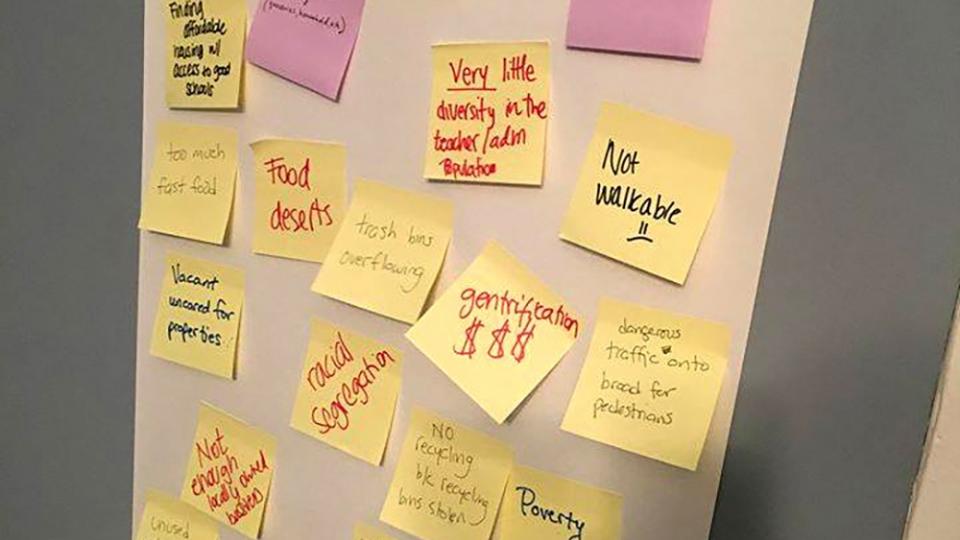 Finding
affordable
housing w/
access to good
schools
Very little
diversity in the
teacher/adm
Population
Not
walkable
too much
fast food
Food
deserts
trash bins
overflowing
Vacant
uncared for
properties
gentrification
$ $ $
dangerous
traffic onto
broad for
pedestrians
racial
segregation
Not
enough
locally owned
business
NO
recycling
b/c recycling
bins stolen
Poverty
unused